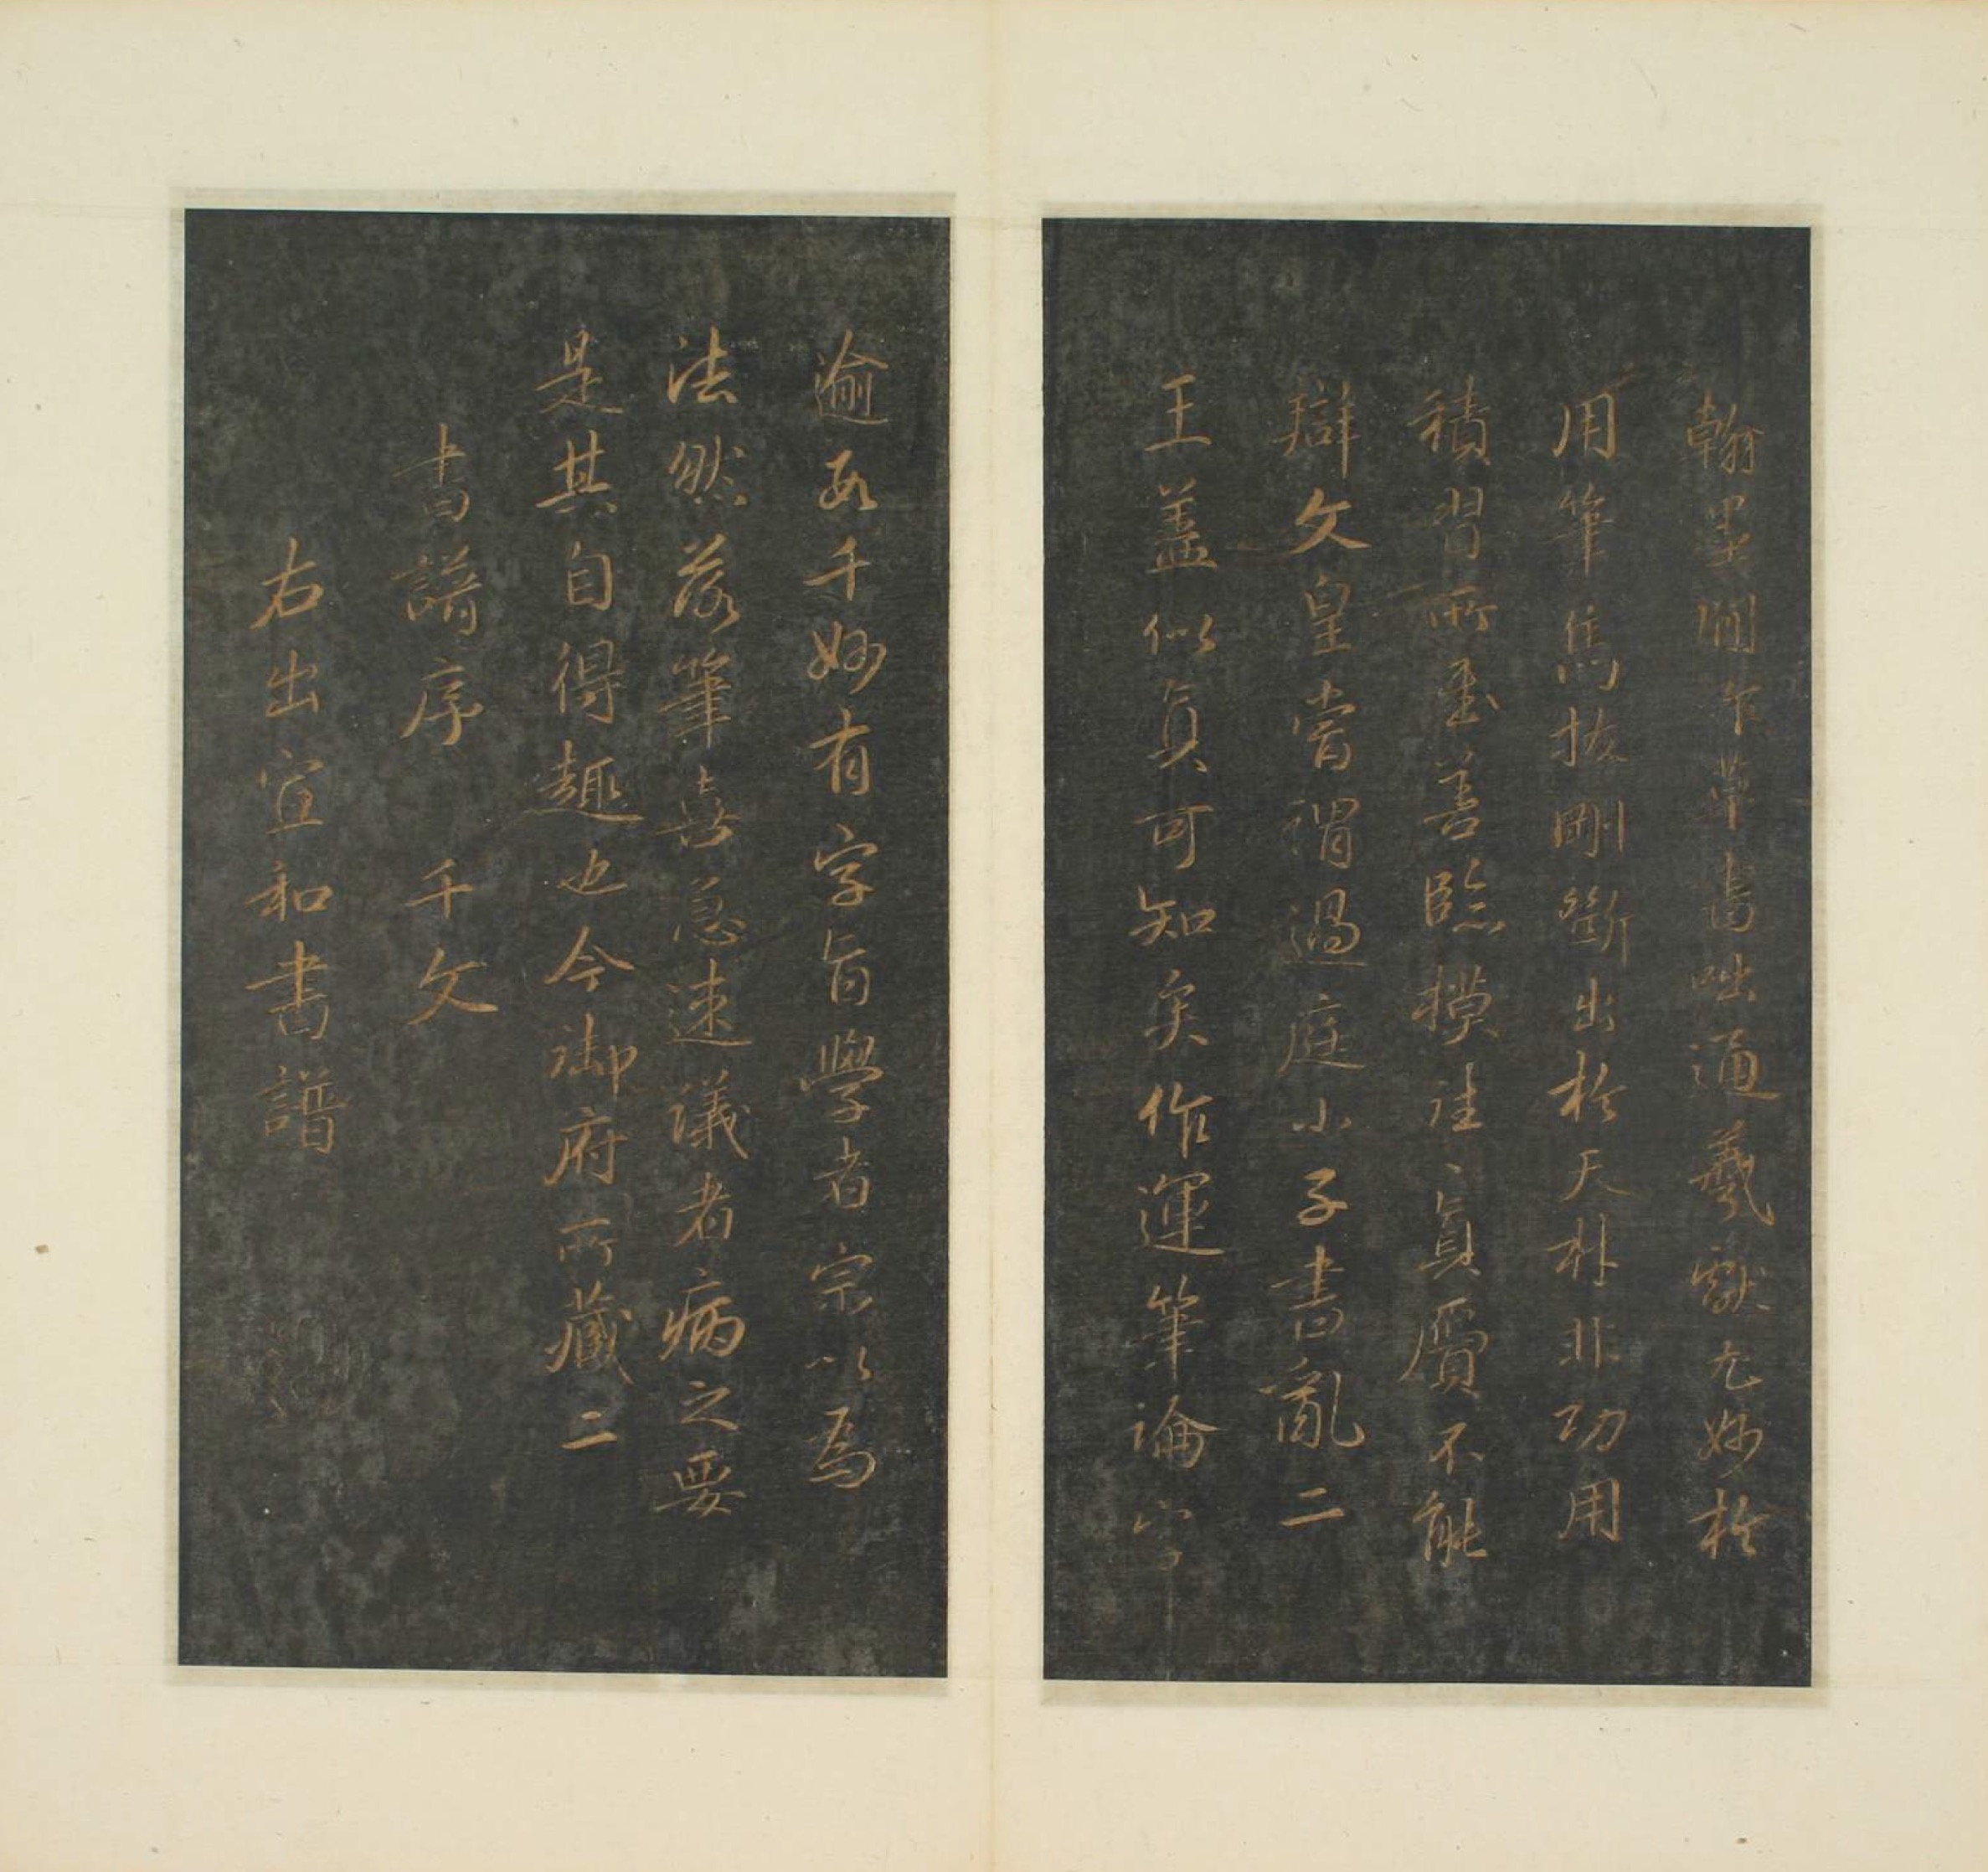 翰墨間作草書咄逼羲獻尤妙於
用筆雋拔剛斷出於天材非功用
積習所至善臨摸往〻真贗不能
辯文皇嘗謂過庭小子書亂二
王蓋似真可知矣作運筆論字
逾数千妙有字旨學者宗以為
法然落筆喜急速議者病之要
是其自得趣也今御府所藏二
書譜序 千文
右出宣和書譜